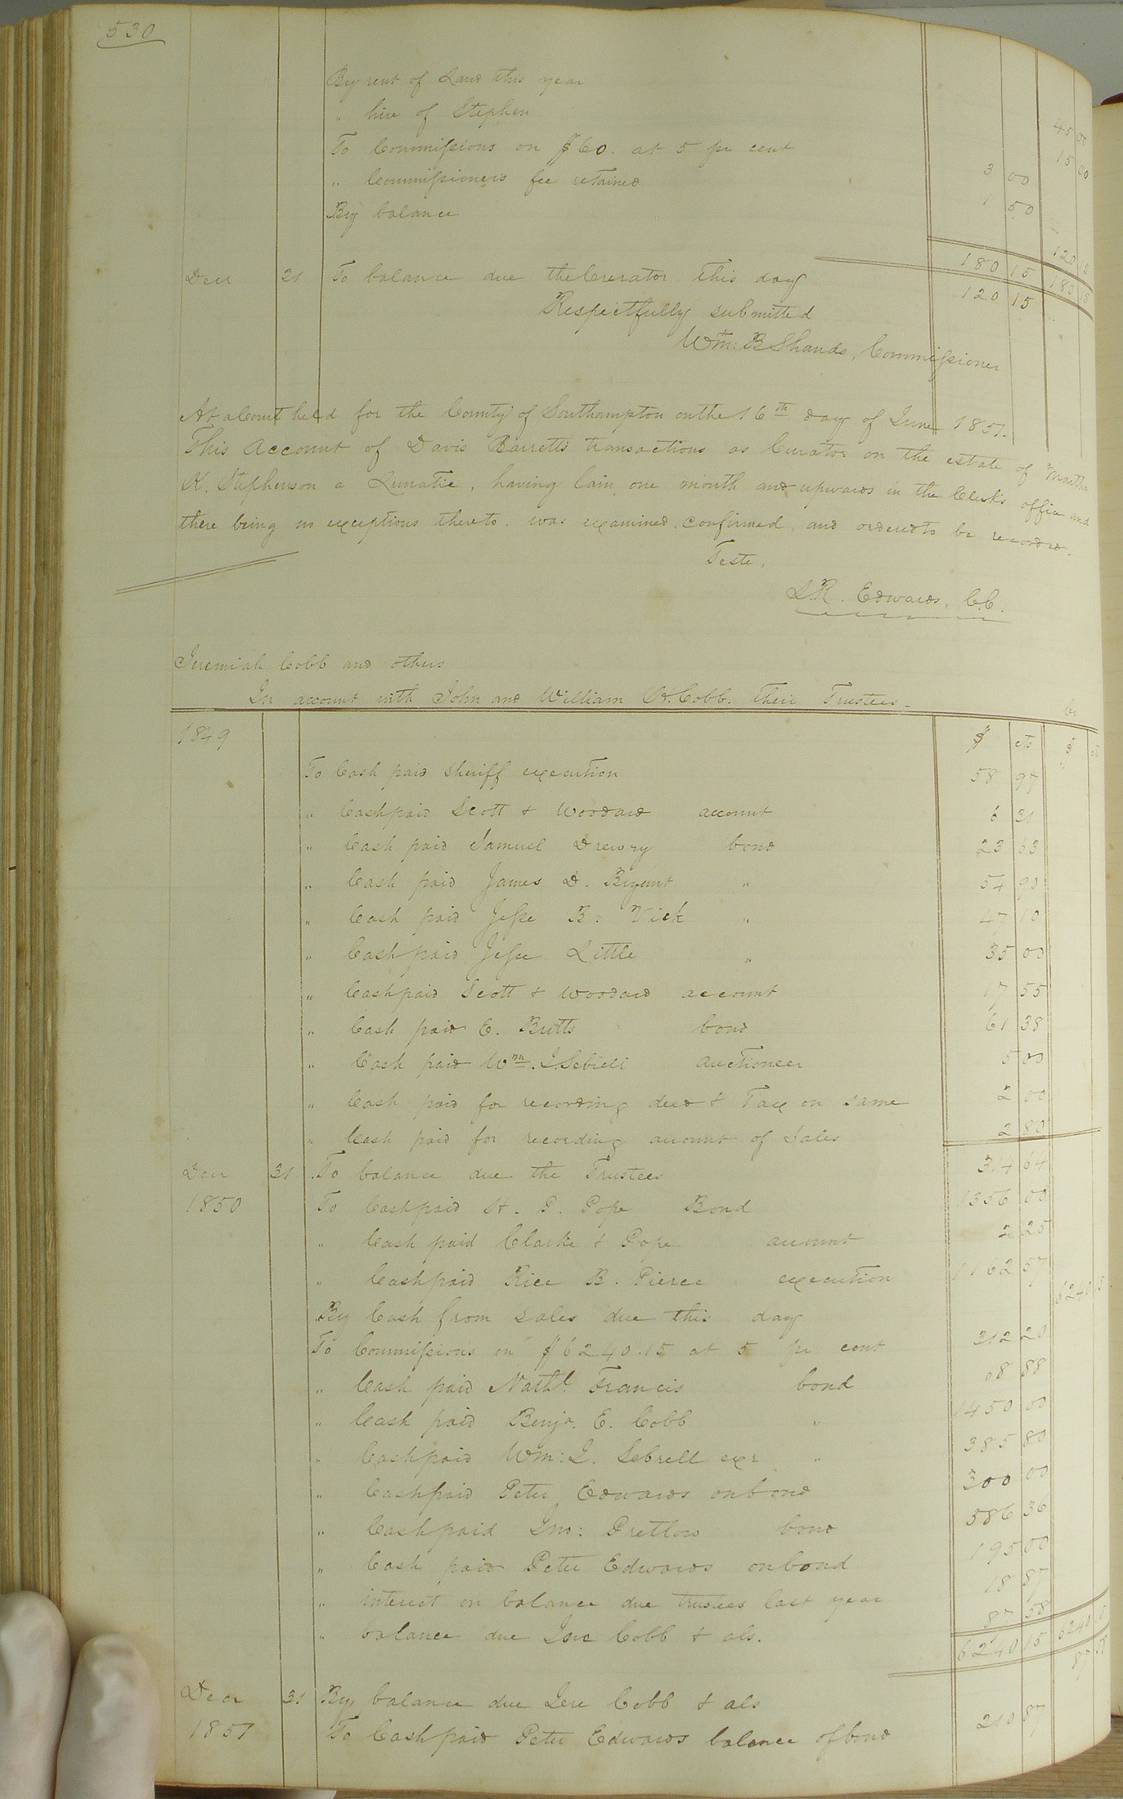 530
By rent of Land this year 45 00
" hire of Stephen 15 00
To Commissions on $60. at 5 pr cent 3 00
" Commissioners fee retained 1 50
By balance 120 15
180 15 180 15
Decr 31 To balance due the Curator this day 120 15
Respectfully submitted
Wm: B Shands, Commissioner
At a Court held for the County of Southampton on the 16th day of June 1851.
This Account of Davis Barretts transactions as Curator on the estate of Martha
K. Stephenson a Lunatic, having lain one month and upwards in the Clerks office and
there being no exceptions thereto. was examined, confirmed, and ordered to be recorded.
Teste,
L.R. Edwards, C.C.
Jeremiah Cobb and others
In account with John and William H. Cobb. their Trustees. Cr
1849 $ cts $ cts
To Cash paid sheriff execution 58 97
" Cash paid Scott & Woodard account 6 31
" Cash paid Samuel Drewry bond 23 63
" Cash paid James D. Bryant " 54 90
" Cash paid Jesse B: Vick " 47 10
" Cash paid Jesse Little " 35 00
" Cash paid Scott & Woodard account 17 55
" Cash paid E. Butts bond 61 38
" Cash paid Wm. J. Sebrell auctioneer 5 00
" Cash paid for recording deed & Tax on same 2 00
" Cash paid for recording amount of Sales 2 80
Decr 31 To balance due the Trustees 314 64
1850 To Cash paid H. P. Pope Bond 1356 00
" Cash paid Clarke & Pope account 2 25
" Cash paid Rice B. Pierce execution 1162 57
By Cash from sales due this day 6240 15
To Commissions on $6240.15 at 5 pr cent 312 20
" Cash paid Nathl. Francis bond 68 88
" Cash paid Benja. E. Cobb " 1450 00
" Cash paid Wm: J. Sebrell exr " 385 80
" Cash paid Peter Edwards on bond 300 00
" Cash paid Jno: Pretlow bond 586 36
" Cash paid Peter Edwards on bond 195 00
" interest on balance due trustees last year 18 87
" balance due Jere Cobb & als. 87 58
6240 15 6240 15
Decr 31 By balance due Jere Cobb & als 87 58
1851 To Cash paid Peter Edwards balance of bond 210 87